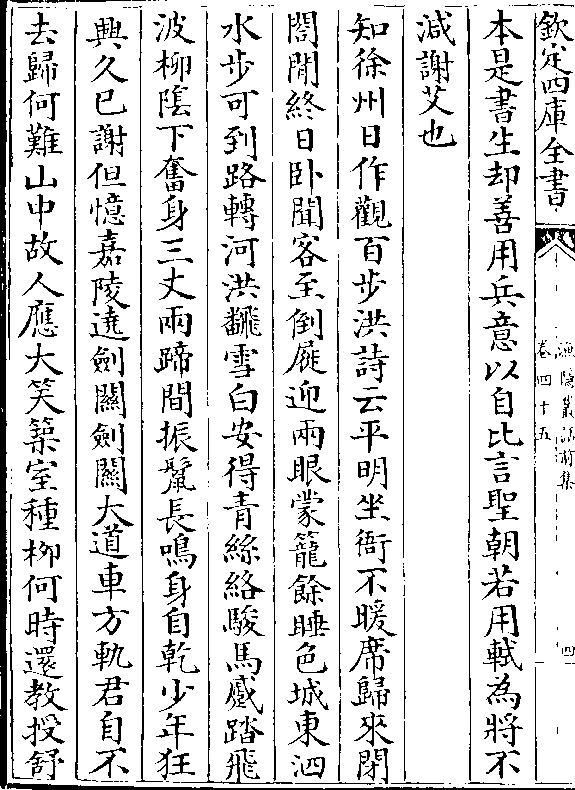 欽定四庫全書
漁隱叢話前集
卷四十五
四
本是書生却善用兵意以自比言聖朝若用軾為將不
減謝艾也
知徐州日作觀百步洪詩云平明坐衙不暖席歸來閉
閤閒終日卧聞客至倒屣迎兩眼蒙籠餘睡色城東泗
水步可到路轉河洪翻雪白安得青絲絡駿馬蹙踏飛
波柳陰下奮身三丈兩蹄間振鬛長鳴身自乾少年狂
興久已謝但憶嘉陵遶劍關劍關大道車方軌君自不
去歸何難山中故人應大笑築室種柳何時還教授舒